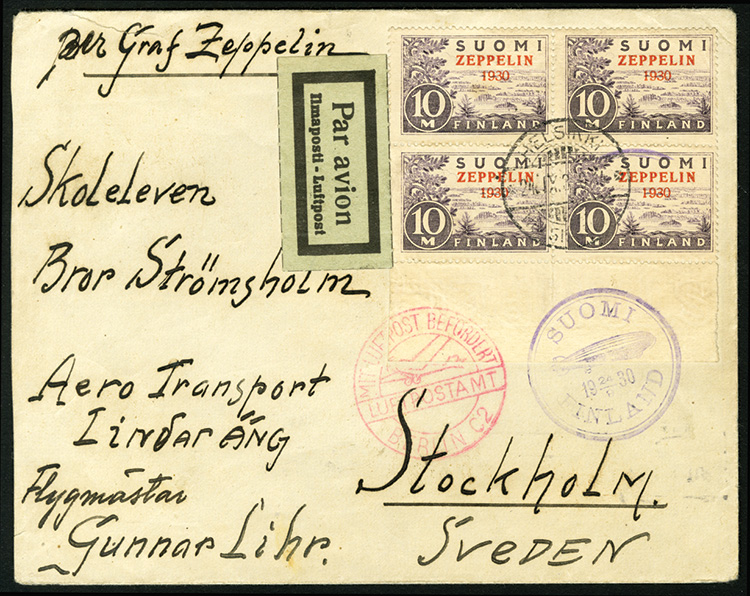 per Graf Zeppelin
Par avion
Ilmaposti - Luftpost
SUOMI
ZEPPELIN
1930
10 M
FINLAND
SUOMI
ZEPPELIN
1930
10 M
FINLAND
SUOMI
ZEPPELIN
1930
10 M
FINLAND
SUOMI
ZEPPELIN
1930
10 M
FINLAND
HELSINKI
Skoleleven
Bror Strömsholm
Aero Transport
Lindaräng
Flygmästar
Gunnar Lihr.
Stockholm.
SVEDEN
MIT LUFTPOST BEFÖRDERT
LUFTPOSTAMT
BERLIN C2
SUOMI
19 24 30
FINLAND